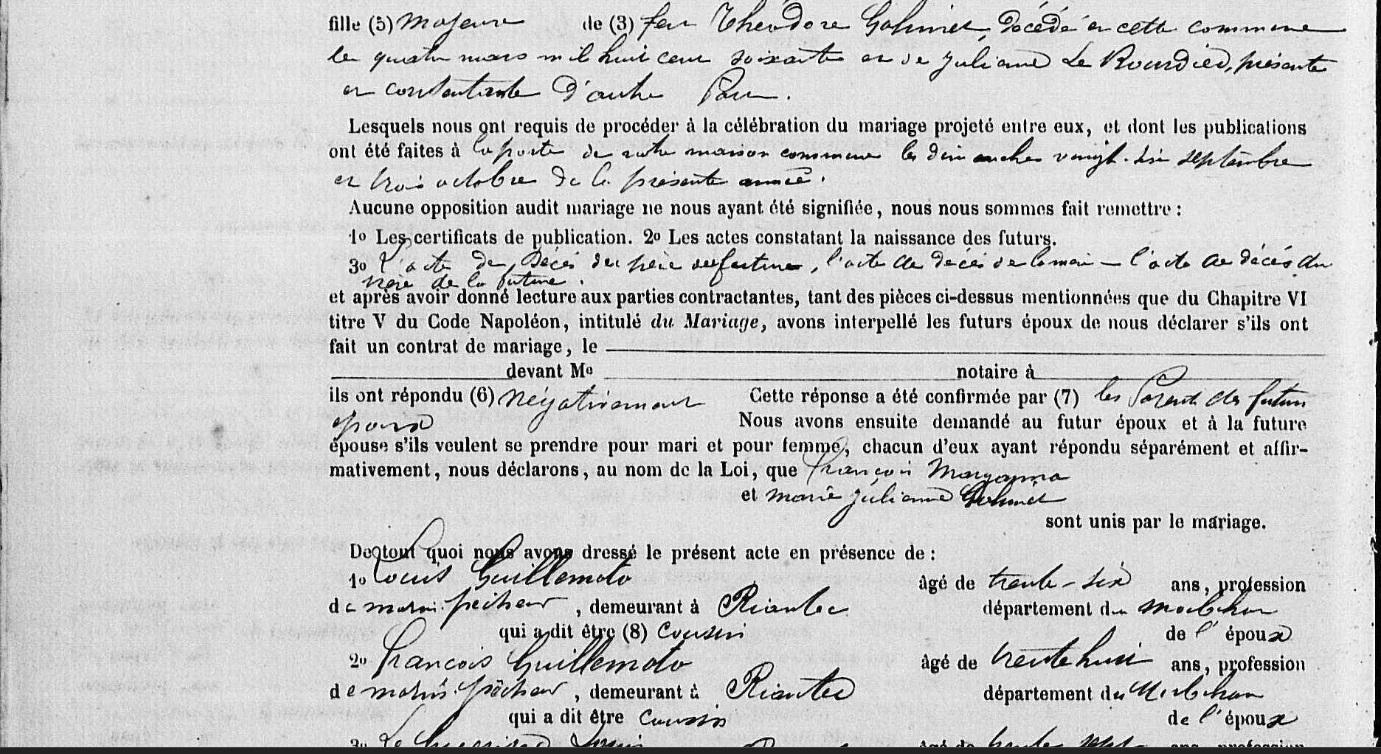 fille (5) majeure de (3) feu Théodore Gohinet, décédé en cette commune
le quatre mars mil huit cent soixante et de Juliane Le Rourdiec, présente
et consentante d'autre Part.
Lesquels nous ont requis de procéder à la célébration du mariage projeté entre eux, et dont les publications
ont été faites à la porte de notre maison commune les dimanches vingt-six septembre
et trois octobre de la présente année.
Aucune opposition audit mariage ne nous ayant été signifiée, nous nous sommes fait remettre :
1o Les certificats de publication. 2o Les actes constatant la naissance des futurs.
3o L'acte de Décès du père l'acte de décès de l'acte de décès du
père de la future.
et après avoir donné lecture aux parties contractantes, tant des pièces ci-dessus mentionnées que du Chapitre VI
titre V du Code Napoléon, intitulé du Mariage, avons interpellé les futurs époux de nous déclarer s'ils ont
fait un contrat de mariage, le
devant Me notaire à
ils ont répondu (6) négativement Cette réponse a été confirmée par (7) les Parents des futurs
époux Nous avons ensuite demandé au futur époux et à la future
épouse s'ils veulent se prendre pour mari et pour femme, chacun d'eux ayant répondu séparément et affir-
mativement, nous déclarons, au nom de la Loi, que François
et marie Juliane Gohinet
sont unis par le mariage.
De tout quoi nous avons dressé le présent acte en présence de :
1o Louis Guillemoto âgé de trente-six ans, profession
de marin pêcheur, demeurant à Riantec département du morbihan
qui a dit être (8) cousin de l'époux
2o François Guillemoto âgé de trente huit ans, profession
de marin pêcheur, demeurant à Riantec département du Morbihan
qui a dit être cousin de l'époux
3o Le Louis âgé de trente sept ans, profession